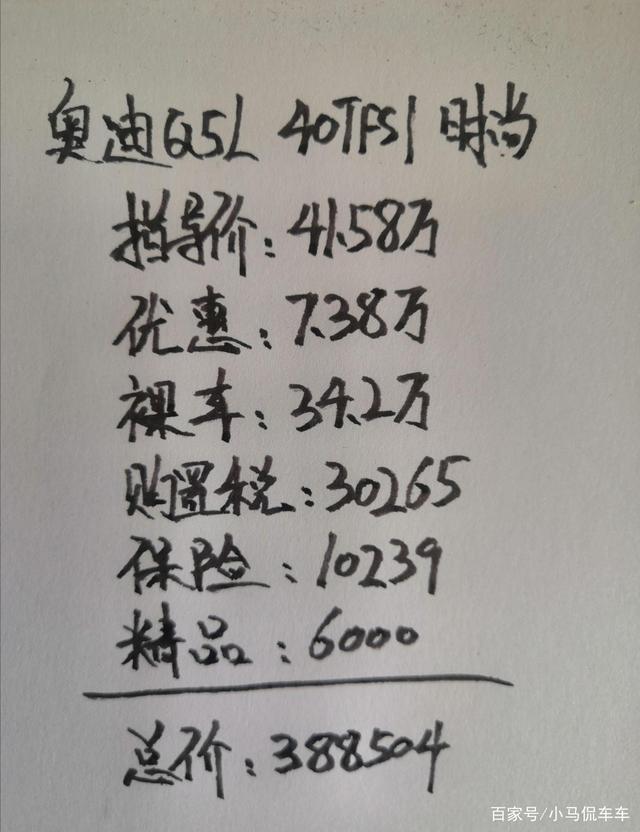 奥迪Q5L 40TFSI 时尚
指导价：41.58万
优惠：7.38万
裸车：34.2万
购置税：30265
保险：10239
精品：6000
总价：388504
百家号/小马侃车车